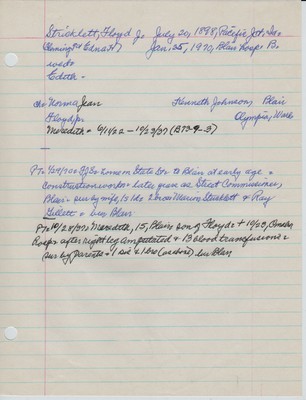 Stricklett, Floyd J. July 20, 1898, Pacific Jct. Ia.
(Clarning & Edna H) Jan. 25, 1970, Blair Hosp. B.
wed:
Edith -
ch: Norma Jean Kenneth Johnson, Blair
Floyd Jr. Olympia, Wash
Meredith = 6/14/22 - 10/23/37 (B73-9-3)
PT= 1/29/70: from State Dr to Blair at early age =
construction worker = later years as Street Commissioner,
Blair = sur by wife, 1 s 1 da 2 bros Marion Stricklett & Ray
Gillett = bur Blair
PT= 10/28/37: Meredith, 15, Blair son of Floyd = + 10/23, Omaha
Hosp after right leg amputated & 13 blood transfusions =
sur by parents = 1 sis & 1 bro bur Blair